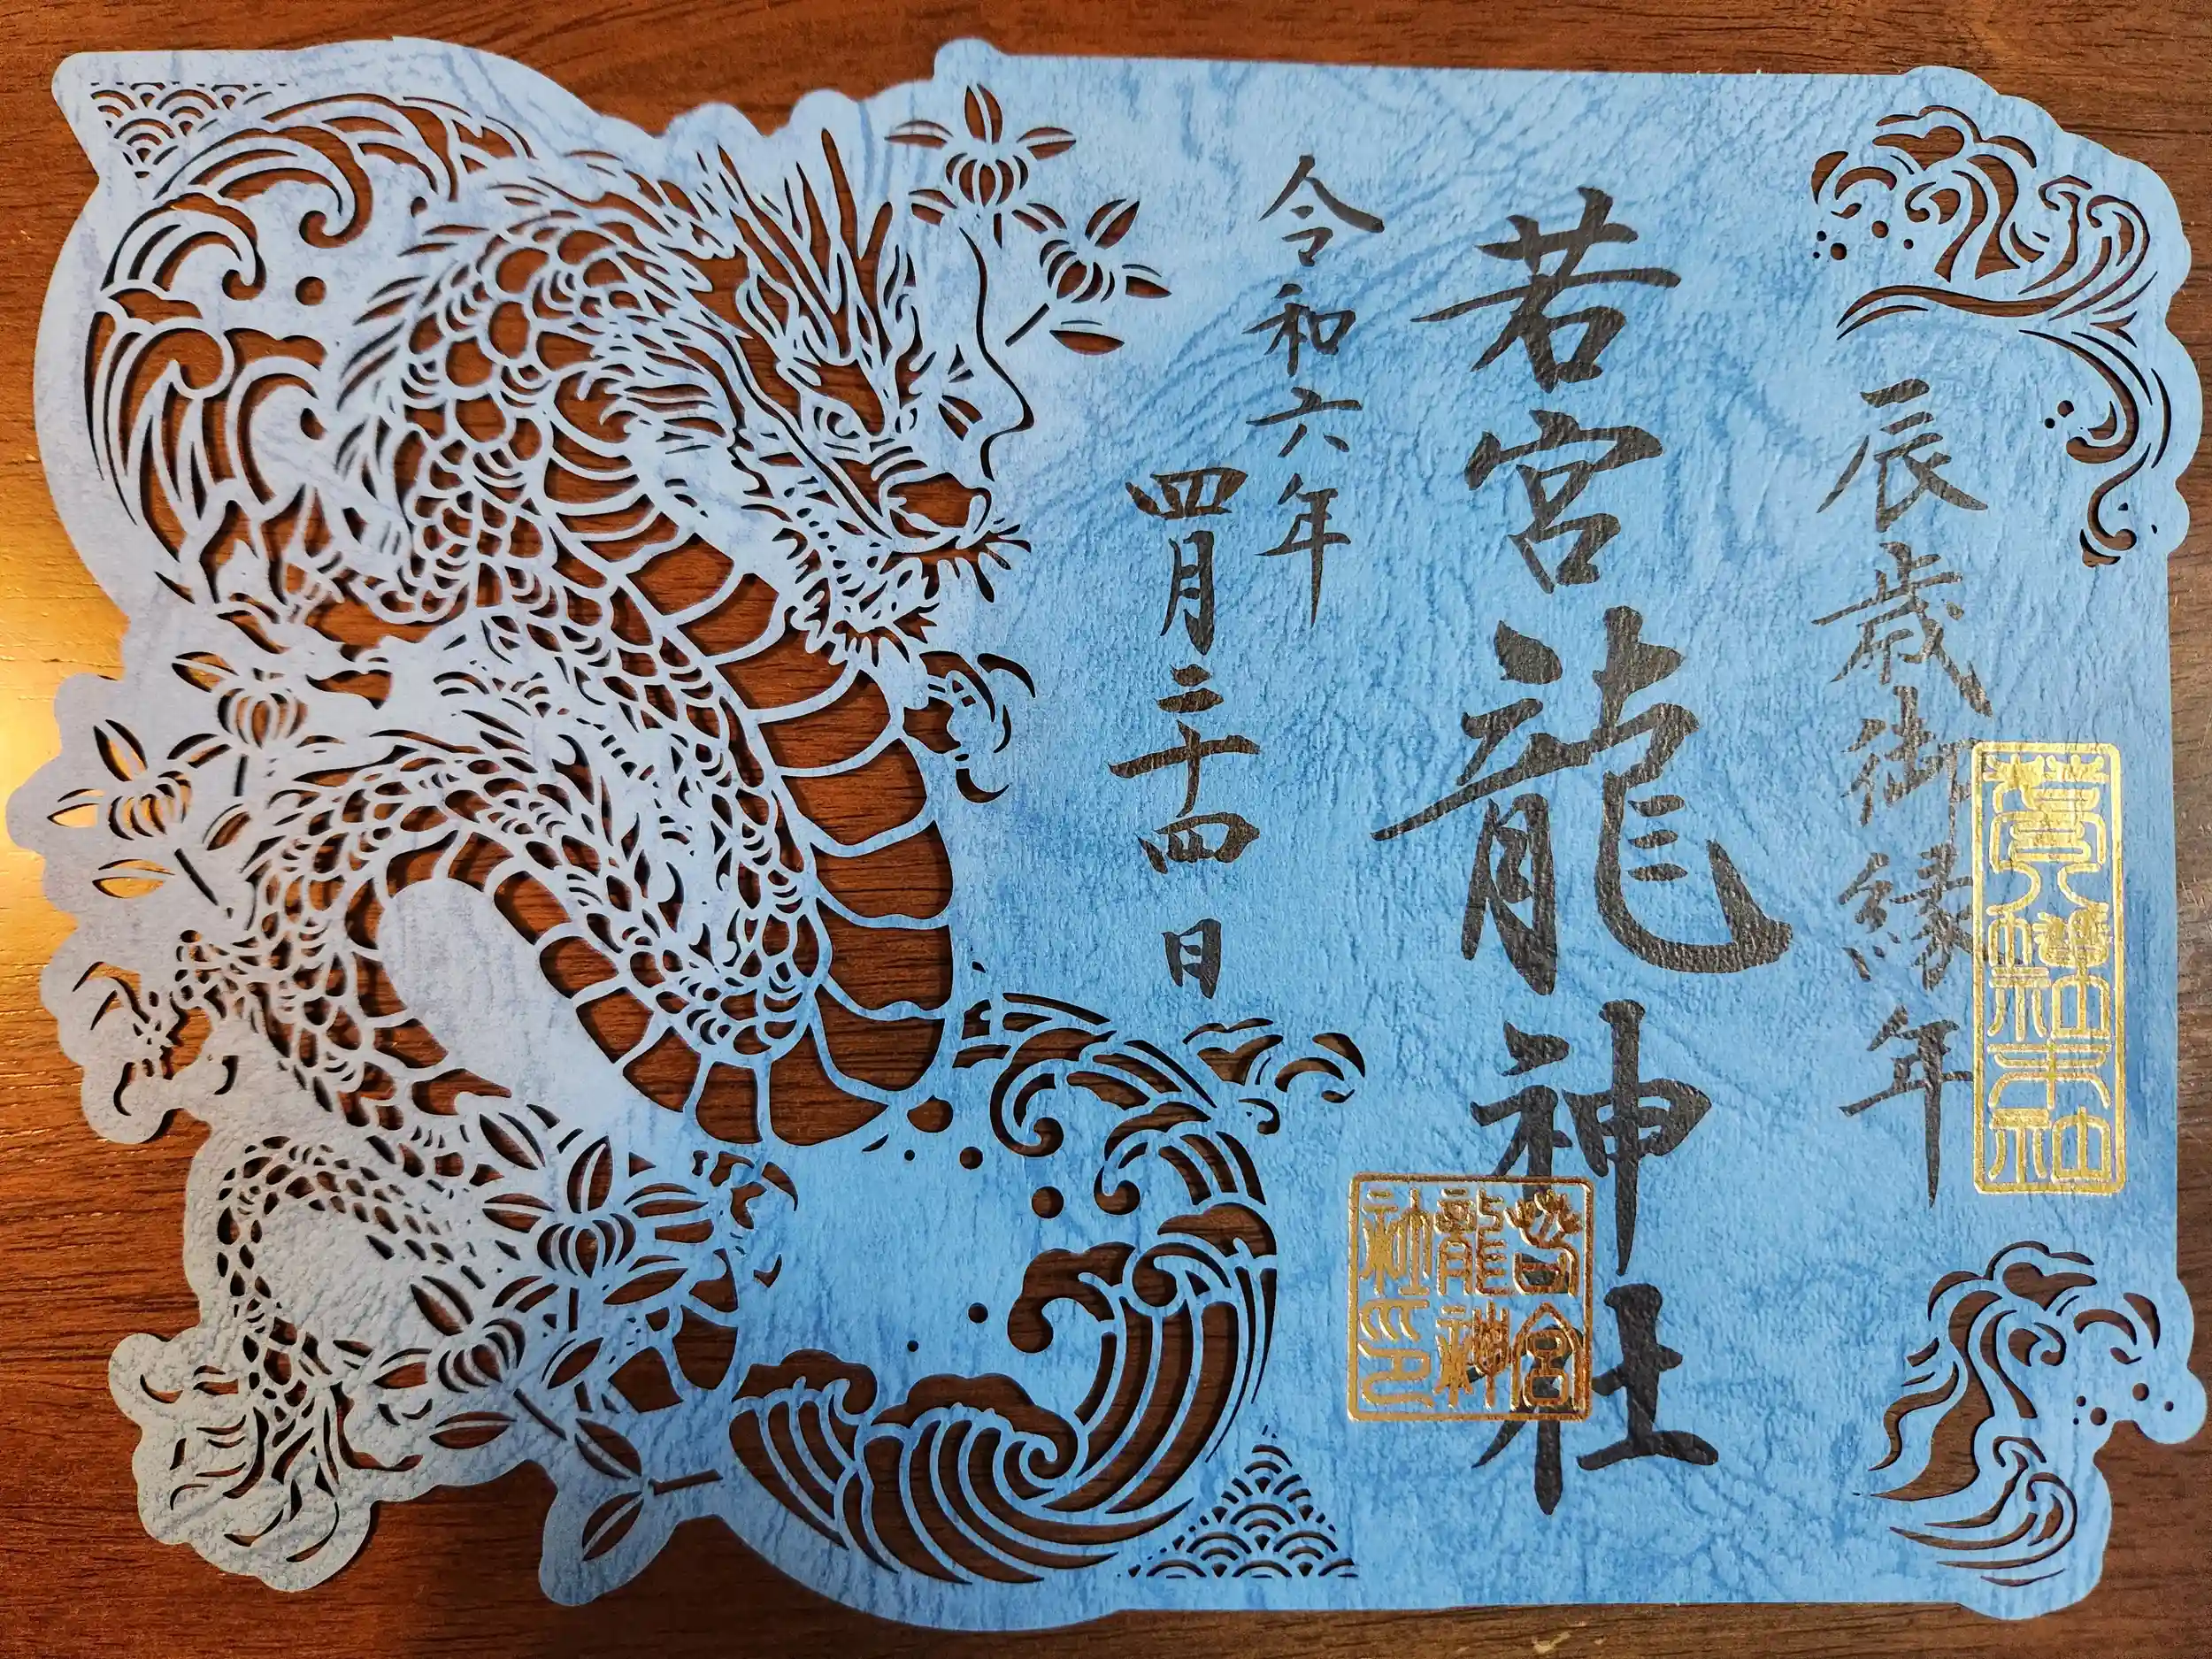 辰歳御縁年
神社末社
若宮龍神社
若宮
龍神
社印
令和六年
四月二十四日